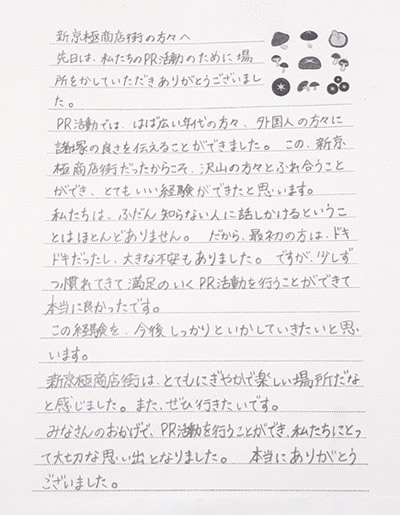 新京極商店街の方々へ
先日は、私たちのPR活動のために場
所をかしていただきありがとうございまし
た。
PR活動では、はば広い年代の方々、外国人の方々に
諸塚の良さを伝えることができました。この、新京
極商店街だったからこそ、沢山の方々とふれ合うこと
ができ、とてもいい経験ができたと思います。
私たちは、ふだん知らない人に話しかけるというこ
とはほとんどありません。だから、最初の方は、ドキ
ドキだったし、大きな不安もありました。ですが、少しず
つ慣れてきて満足のいくPR活動を行うことができて
本当に良かったです。
この経験を、今後しっかりといかしていきたいと思
います。
新京極商店街は、とてもにぎやかで楽しい場所だな
と感じました。また、ぜひ行きたいです。
みなさんのおかげで、PR活動を行うことができ、私たちにとっ
て大切な思い出となりました。本当にありがとう
ございました。